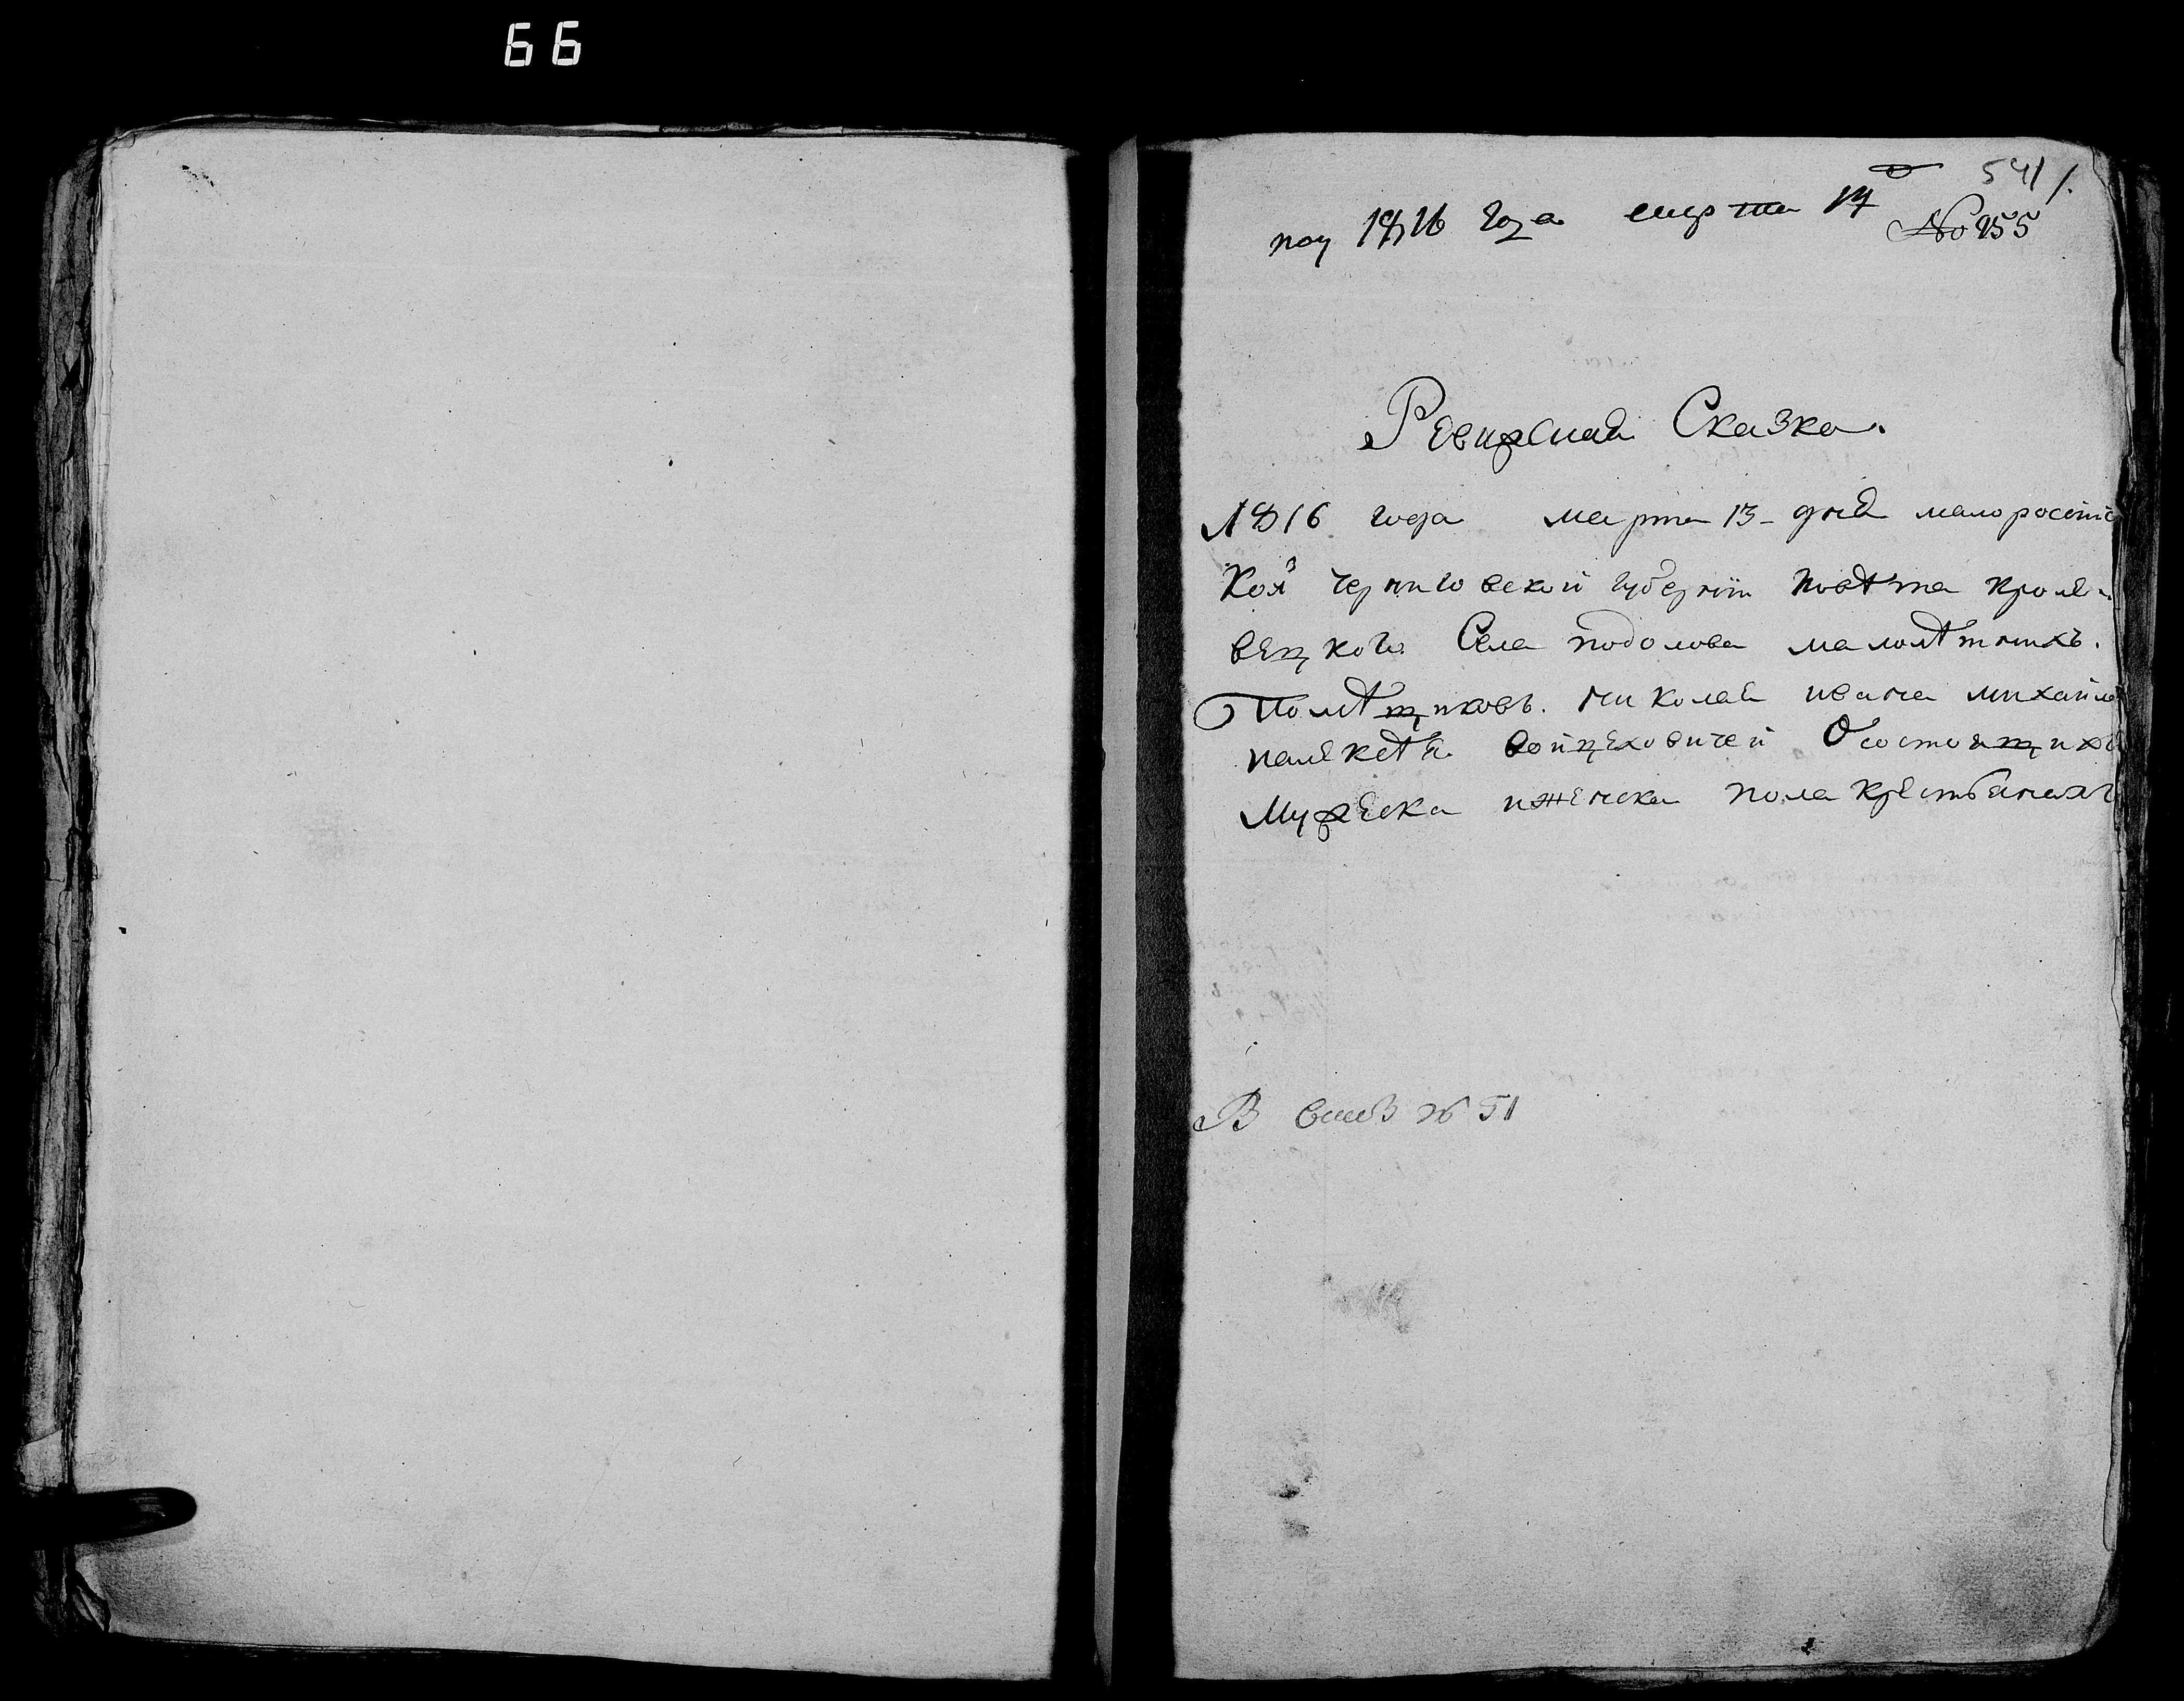 66
541
пол 1816 года марта 17
№ 255
Ревизская Сказка.
1816 года марта 13 дня малоросийс
кой черниговской губернии повѣта кроле
вецкого Села подолова малолѣтнихъ.
Помѣщиковъ. николая ивана михайла
войцеховичей О состоящихъ
Мужеска иженска пола крестьянахъ
В № 51